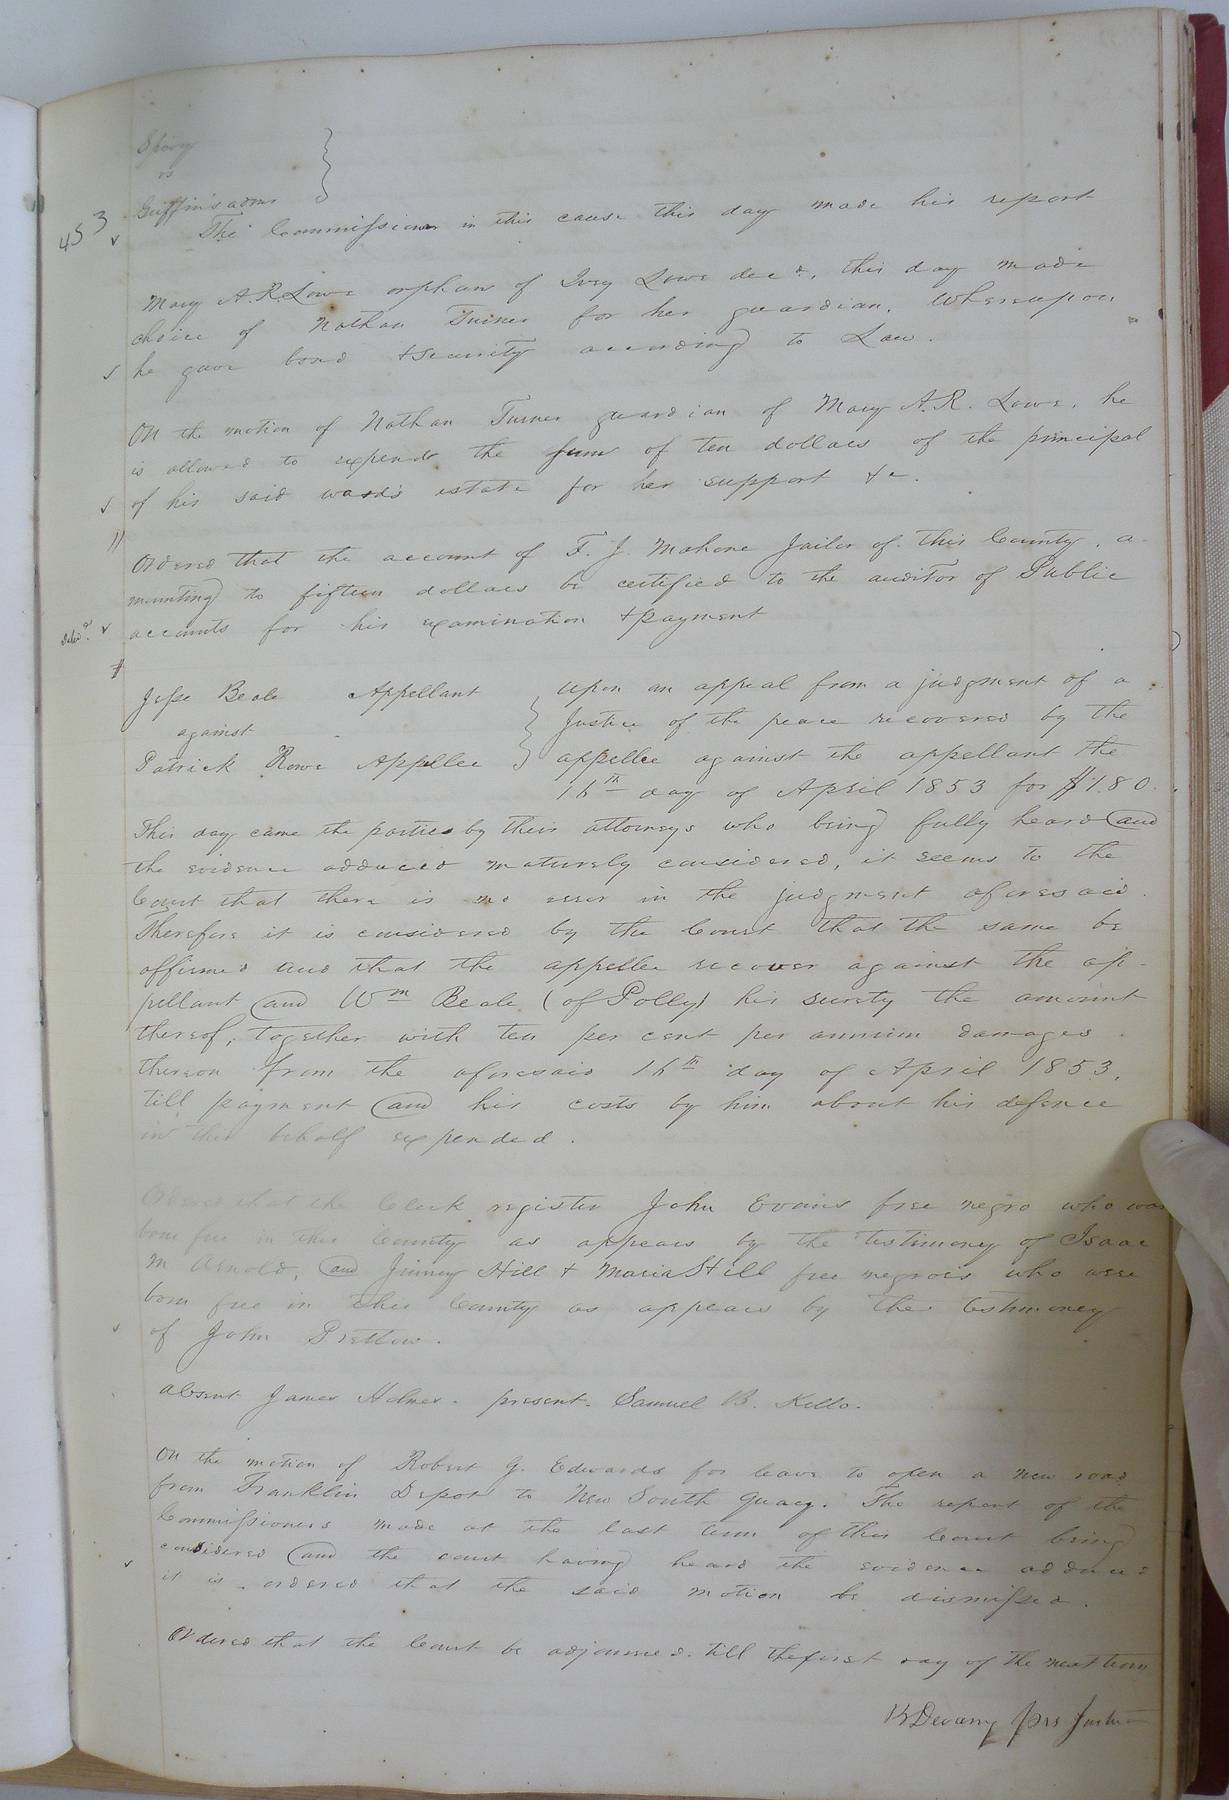 Spivy
vs
Griffin's adms
453
The Commissioner in this cause this day made his report
Mary A. R. Lowe orphan of Ivey Lowe decd., this day made
choice of Nathan Turner for her guardian. Whereupon
he gave bond & security according to Law.
On the motion of Nathan Turner guardian of Mary A. R. Lowe, he
is allowed to expend the sum of ten dollars of the principal
of his said ward's estate for her support &c.
Ordered that the account of F. J. Mahone Jailor of this County, a-
mounting to fifteen dollars be certified to the auditor of Public
accounts for his examination & payment
Jesse Beale Appellant
against
Patrick Rowe Appellee
Upon an appeal from a judgment of a
Justice of the peace recovered by the
appellee against the appellant the
16th day of April 1853 for $1.80.
This day came the parties by their attorneys who being fully heard and
the evidence adduced maturely considered, it seems to the
Court that there is no error in the judgment aforesaid.
Therefore it is considered by the Court that the same be
affirmed and that the appellee recover against the ap-
pellant and Wm Beale (of Polly) his surety the amount
thereof, together with ten per cent per annum damages
thereon from the aforesaid 16th day of April 1853,
till payment and his costs by him about his defence
in this behalf expended.
Ordered that the Clerk register John Evans free negro who was
born free in this County as appears by the testimony of Isaac
M Arnold, and Jinney Hill & Maria Hill free negroes who were
born free in this County as appears by the testimoney
of John Pretlow.
Absent James Holmes. present. Samuel B. Kello.
On the motion of Robert G. Edwards for leave to open a new road
from Franklin Depot to New South Quay. The report of the
Commissioners made at the last term of this Court being
considered and the court having heard the evidence adduced
it is ordered that the said motion be dismissed.
Ordered that the Court be adjourned till the first day of the next term